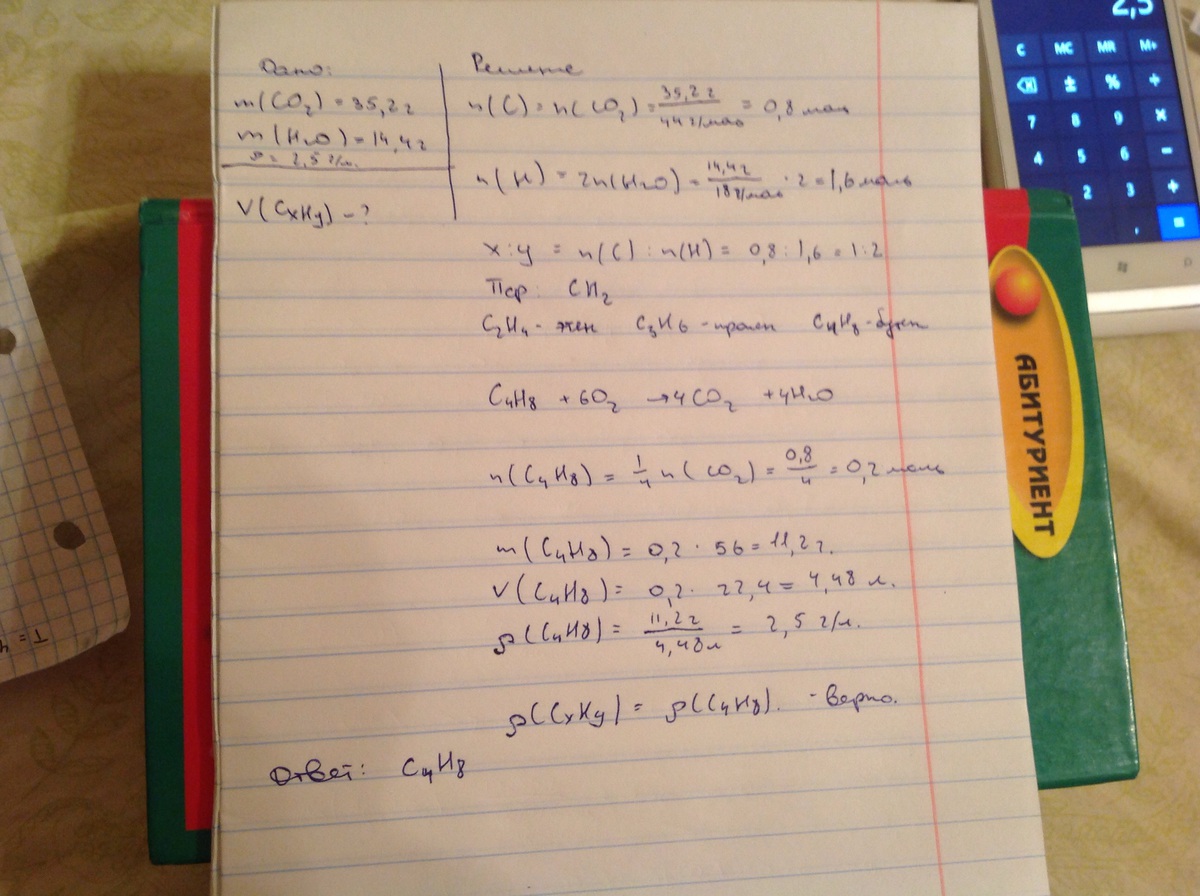 Дано:
m(CO₂) = 35,2 г
m(H₂O) = 14,4 г
ρ = 2,5 г/л.
V(CxHy) - ?
Решение
n(C) = n(CO₂) = 35,2 г / 44 г/моль = 0,8 моль
n(H) = 2n(H₂O) = 14,4 г / 18 г/моль · 2 = 1,6 моль
x : y = n(C) : n(H) = 0,8 : 1,6 = 1 : 2
CH₂
C₂H₄ - этен C₃H₆ - пропен C₄H₈ - бутен
C₄H₈ + 6O₂ → 4CO₂ + 4H₂O
n(C₄H₈) = 1/4 n(CO₂) = 0,8/4 = 0,2 моль
m(C₄H₈) = 0,2 · 56 = 11,2 г.
V(C₄H₈) = 0,2 · 22,4 = 4,48 л.
ρ(C₄H₈) = 11,2 г / 4,48 л = 2,5 г/л.
ρ(CxHy) = ρ(C₄H₈). - верно.
Ответ: C₄H₈
АБИТУРИЕНТ
2,5
C MC MR M+
± % ÷
7 8 9 ×
4 5 6 −
2 3 +
, =
T = 4